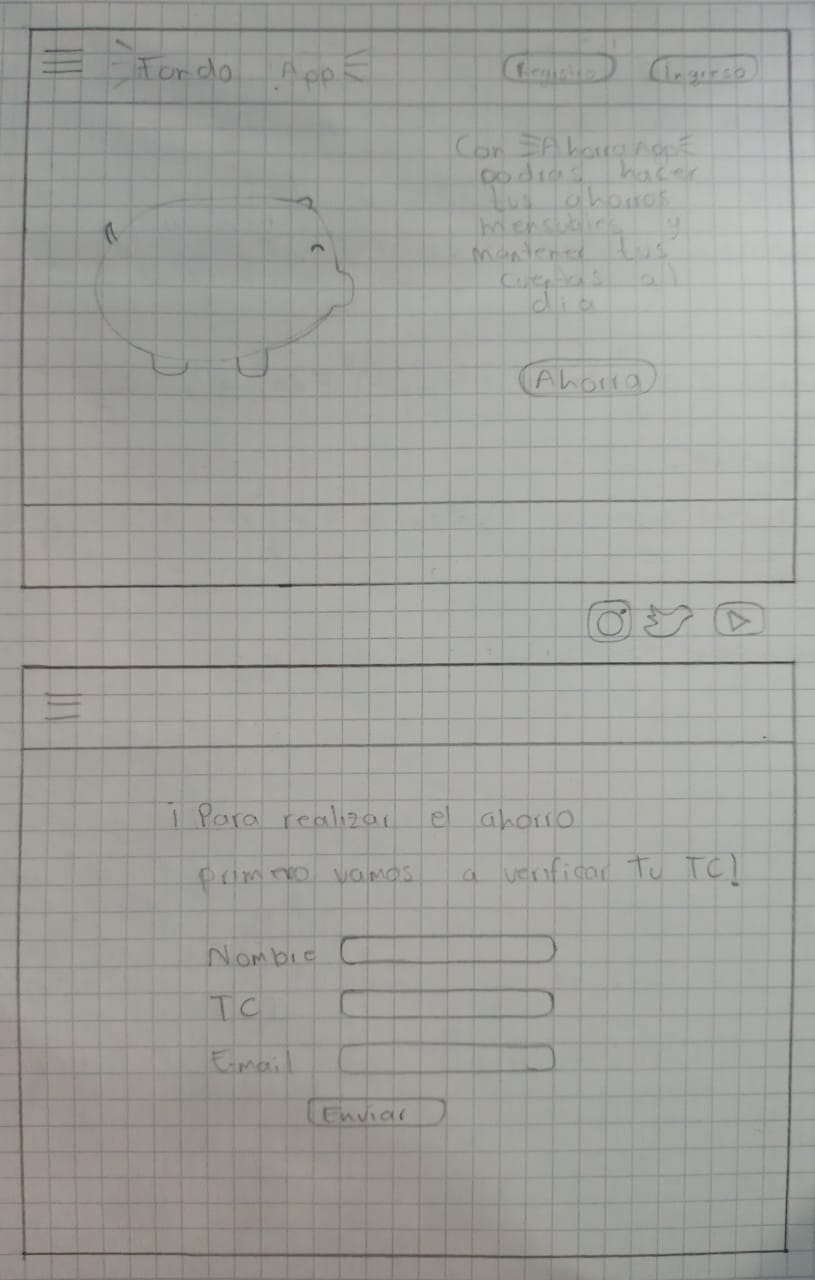 Fondo App
Registro
Ingreso
Con AhorroApp
podras hacer
tus ahorros
mensuales y
mantener tus
cuentas al
dia
Ahorra
¡Para realizar el ahorro
primero vamos a verificar Tu TC!
Nombre
TC
E-mail
Enviar